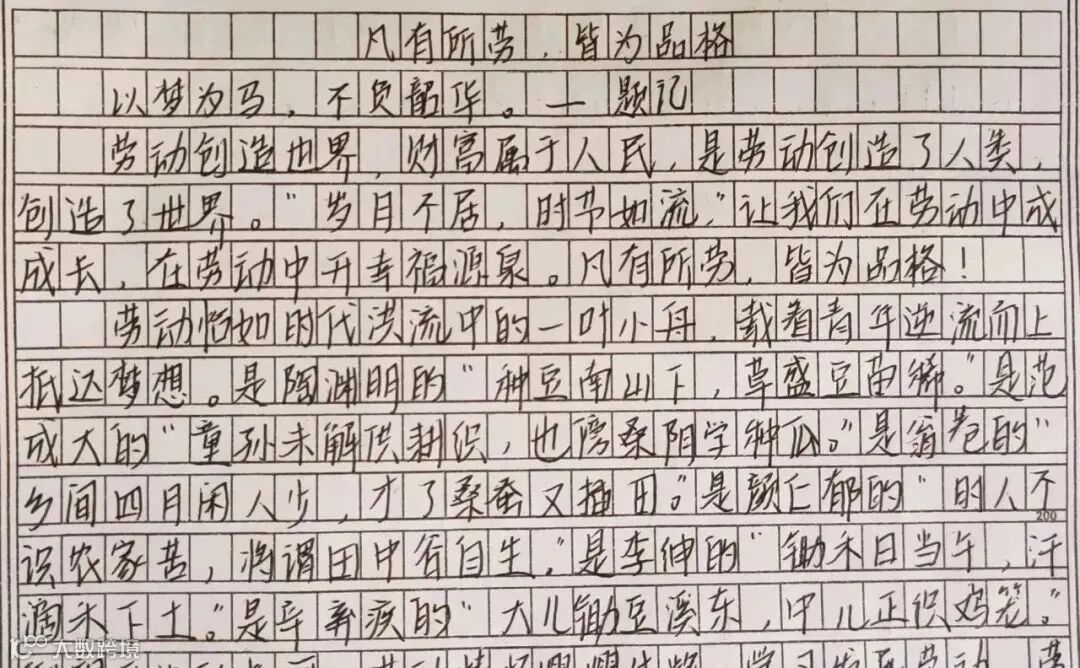 凡有所劳，皆为品格
以梦为马，不负韶华。—题记
劳动创造世界，财富属于人民，是劳动创造了人类，
创造了世界。"岁月不居，时节如流"让我们在劳动中成
成长，在劳动中开幸福源泉。凡有所劳，皆为品格！
劳动恰如时代洪流中的一叶小舟，载着青年逆流而上
抵达梦想。是陶渊明的"种豆南山下，草盛豆苗稀。"是范
成大的"童孙未解供耕织，也傍桑阴学种瓜。"是翁卷的"
乡间四月闲人少，才了桑蚕又插田。"是颜仁郁的"时人不
200
识农家苦，将谓田中谷自生。"是李绅的"锄禾日当午，汗
滴禾下土。"是辛弃疾的"大儿锄豆溪东，中儿正织鸡笼。"
大数跨境